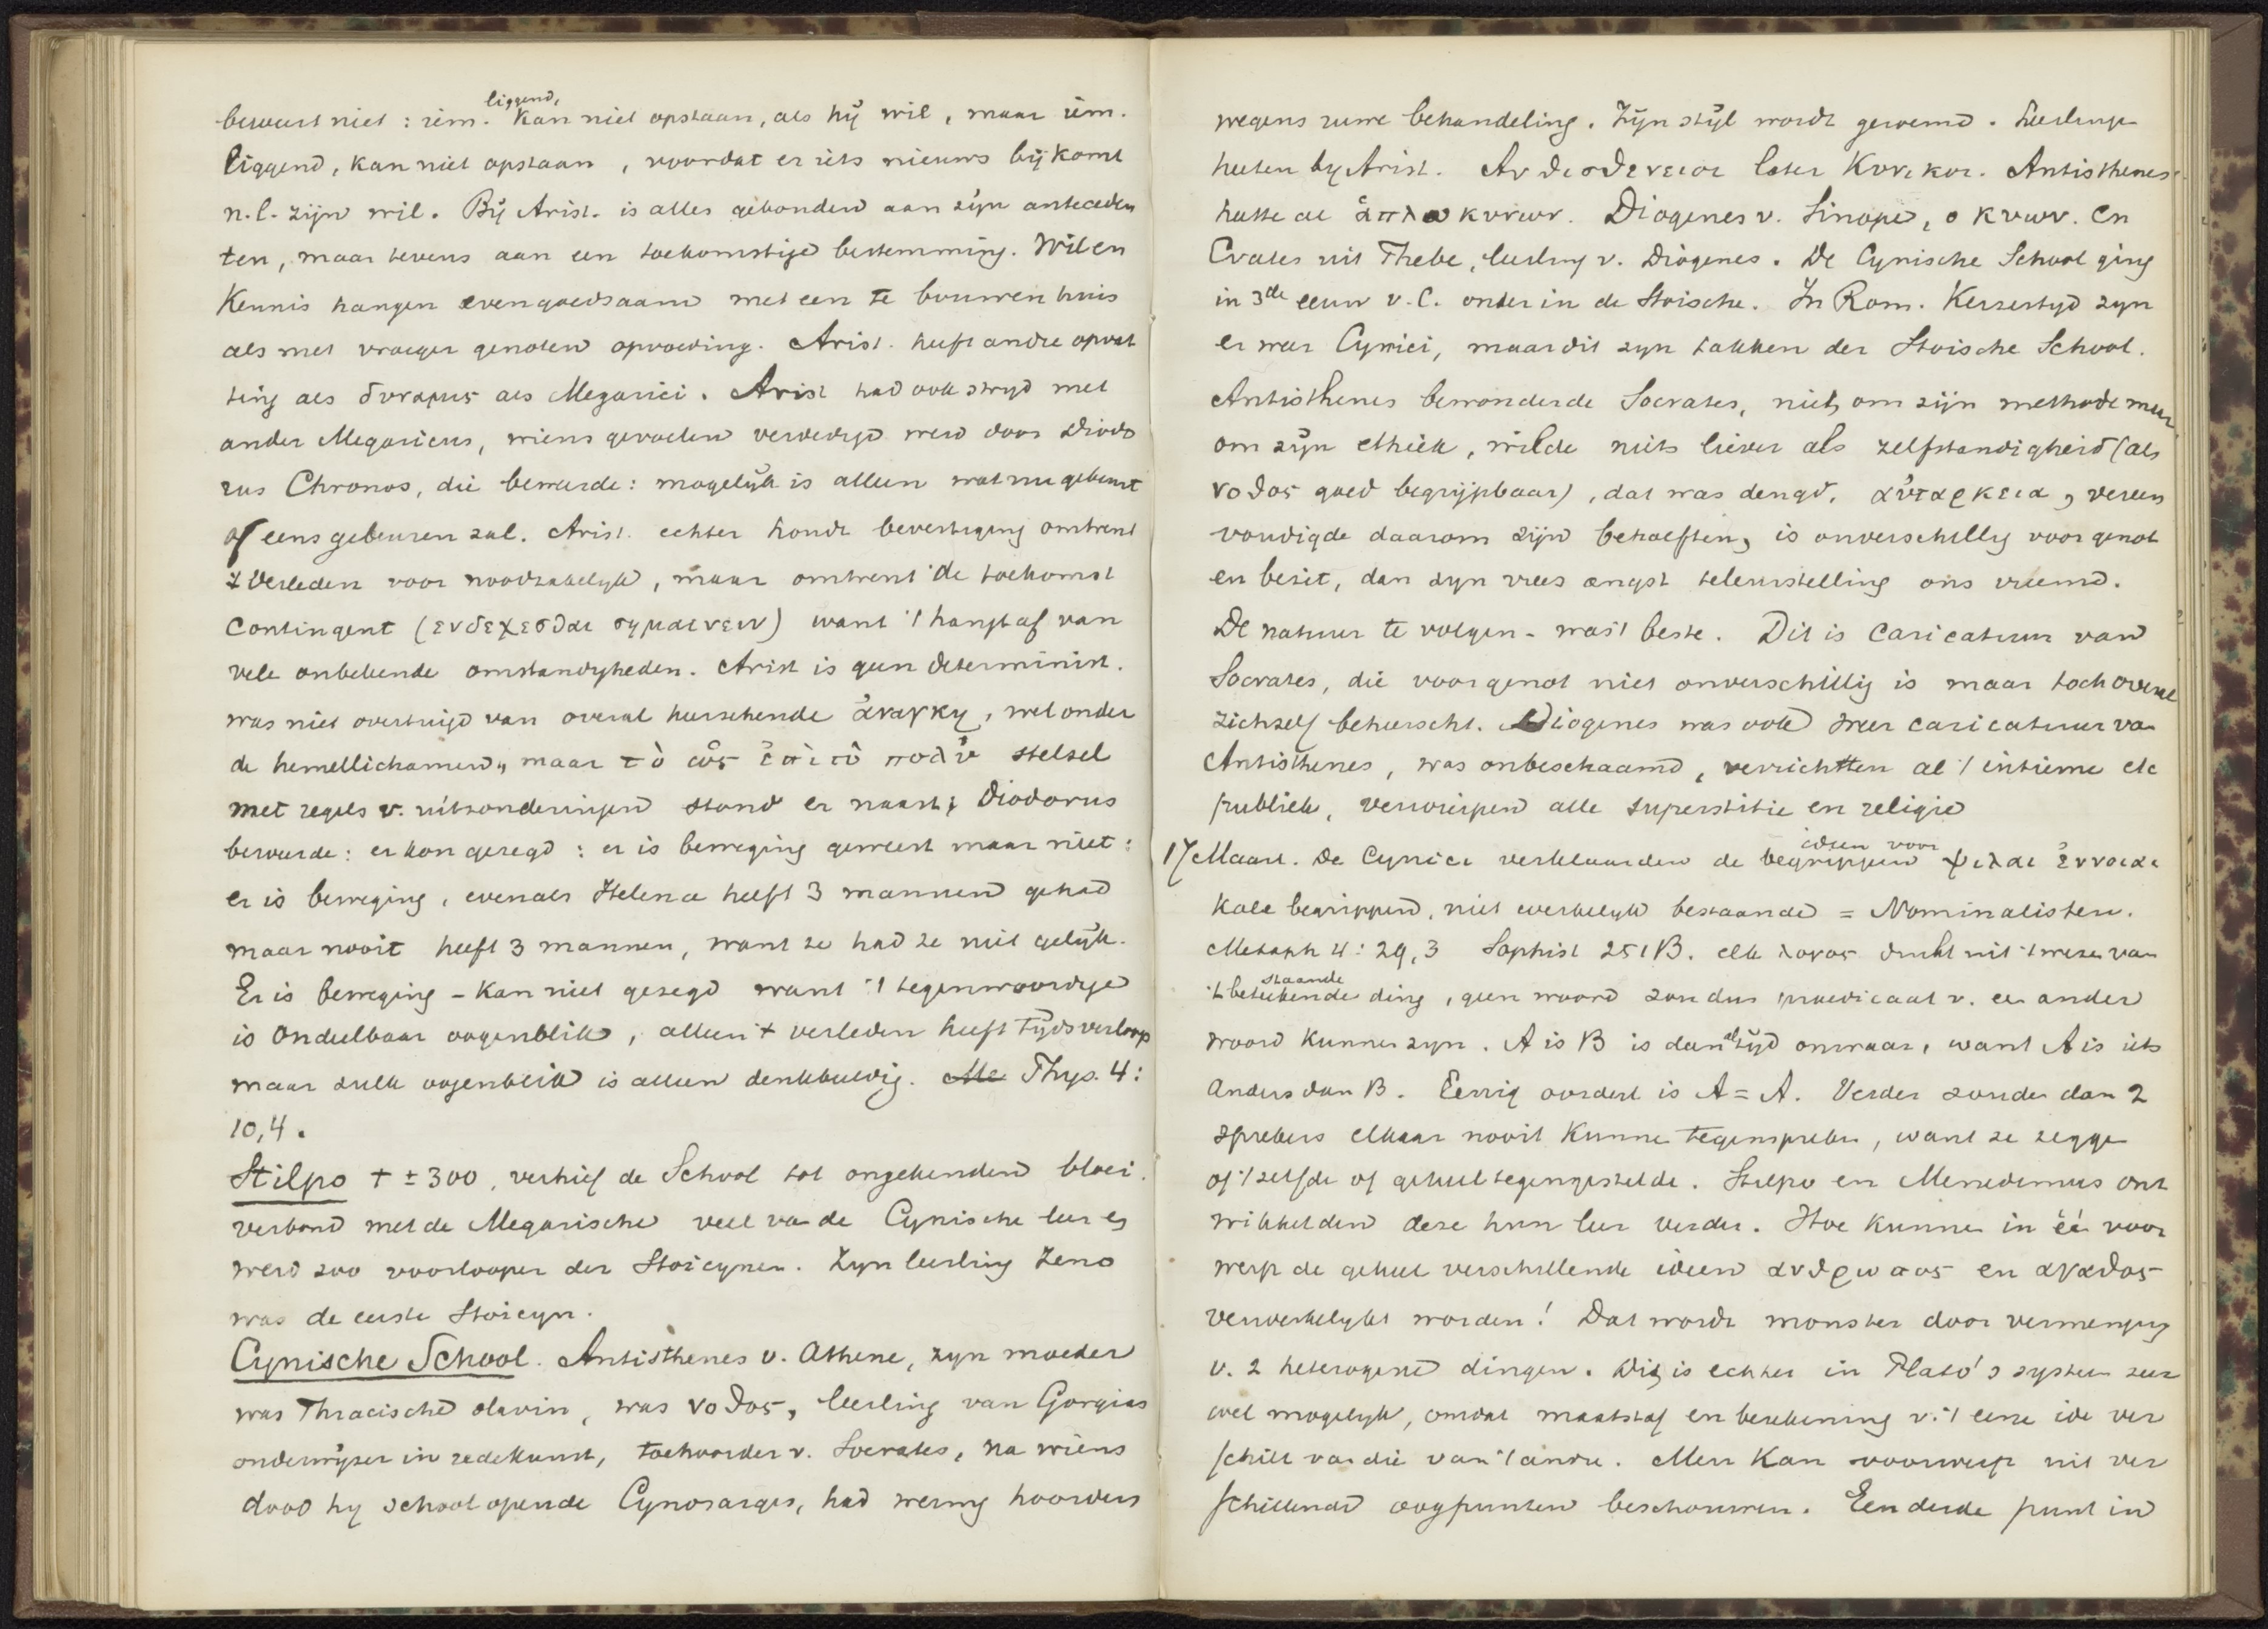 bewust niet : iem. liggend, kan niet opstaan, als hij wil, maar iem.
liggend, kan niet opstaan, voordat er iets nieuws bij komt
n.l. zijn wil. Bij Arist. is alles gebonden aan zijn anteceden
ten, maar tevens aan een toekomstige bestemming. Wil en
Kennis hangen evengoed saam met een te bouwen huis
als met vroeger genoten opvoeding. Arist. heeft andre opvat
ting als δυναμις als Megarici. Arist had ook strijd met
ander Megaricus, wiens gevoelen verdedigd werd door Diodo
rus Chronos, die beweerde: mogelijk is alleen wat nu gebeurt
of eens gebeuren zal. Arist. echter houdt bevestiging omtrent
't verleden voor noodzakelyk, maar omtrent de toekomst
contingent (ενδεχεσθαι σημαινειν) want 't hangt af van
vele onbekende omstandigheden. Arist is geen determinist.
was niet overtuigd van overal heerschende ἀναγκη, wel onder
de hemellichamen, maar τὸ ὡς ἐπὶ τὸ πολὺ stelsel
met regels v. uitzonderingen stond er naast; Diodorus
beweerde: er kon gezegd : er is beweging geweest maar niet:
er is beweging, evenals Helena heeft 3 mannen gehad
maar nooit heeft 3 mannen, want ze had ze niet gelijk.
Er is beweging - kan niet gezegd want 't tegenwoordige
is ondeelbaar oogenblik, alleen 't verleden heeft tijdsverloop
maar zulk oogenblik is alleen denkbeeldig. Me Phys. 4:
10,4.
Stilpo † ± 300, verhief de School tot ongekenden bloei.
verbond met de Megarische veel van de Cynische leer en
werd zoo voorlooper der Stoicynen. Zyn leerling Zeno
was de eerste Stoicyn.
Cynische School. Antisthenes v. Athene, zyn moeder
was Thracische slavin, was νοθος, leerling van Gorgias
onderwijzer in redekunst, toehoorder v. Socrates, na wiens
dood hy school opende Cynosarges, had weinig hoorders
wegens ruwe behandeling. Zijn stijl wordt geroemd. Leerlingen
heeten by Arist. Ανθισθενειοι later Κυνικοι. Antisthenes
heette al ἁπλο κυνων. Diogenes v. Sinope, ο κυων. En
Crates uit Thebe, leerling v. Diogenes. De Cynische School ging
in 3de eeuw v. C. onder in de Stoische. In Rom. Keizertyd zyn
er weer Cynici, maar dit zyn takken der Stoische School.
Antisthenes bewonderde Socrates, niet om zijn methode maar
om zijn ethiek, wilde niets liever als zelfstandigheid (als
νοθος goed begrijpbaar), dat was deugd, αὐταρκεια, vereen
voudigde daarom zijn behoeften, is onverschillig voor genot
en bezit, dan zyn vrees angst teleurstelling ons vreemd.
De natuur te volgen - was 't beste. Dit is caricatuur van
Socrates, die voor genot niet onverschillig is maar toch overal
zichzelf beheerscht. Diogenes was ook weer caricatuur van
Antisthenes, was onbeschaamd, verrichtten al 't intieme etc
publiek, verwierpen alle superstitie en religie
17 Maart. De Cynici verklaarden de ideen voor begrippen ψιλαι ἐννοιαι
Kale begrippen, niet werkelyk bestaande = Nominalisten.
Metaph 4: 29,3 Sophist 251 B. elk λογος drukt uit 't wezen van
't bestaande beteekende ding, geen woord zou dus praedicaat v. een ander
woord kunnen zyn. A is B is dan altijd onwaar, want A is iets
anders dan B. Eenig oordeel is A = A. Verder zouden dan 2
sprekers elkaar nooit kunnen tegenspreken, want ze zeggen
of 't zelfde of geheel tegengestelde. Stilpo en Menedemus ont
wikkelden deze hun leer verder. Hoe kunnen in één voor
werp de geheel verschillende ideen ανθρωπος en αγαθος
verwerkelykt worden! Dat wordt monster door vermenging
v. 2 heterogene dingen. Dit is echter in Plato's systeem zeer
wel mogelyk, omdat maatstaf en berekening v. 't eene ide ver
schilt van die van 't andre. Men kan voorwerp uit ver
schillende oogpunten beschouwen. Een derde punt in